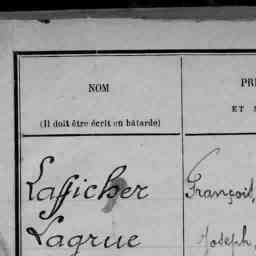 NOM
PR
ET
(Il doit être écrit en bâtarde)
Lafficher François,
Lagrue Joseph,